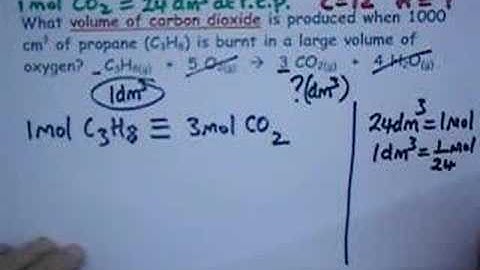 1mol CO₂ ≡ 24 dm³ at r.t.p. C=12
What volume of carbon dioxide is produced when 1000
cm³ of propane (C₃H₈) is burnt in a large volume of
oxygen? _C₃H₈(g) + 5 O₂(g) → 3 CO₂(g) + 4 H₂O(g)
1dm³ ?(dm³)
1mol C₃H₈ ≡ 3mol CO₂
24dm³=1mol
1dm³=1/24 mol